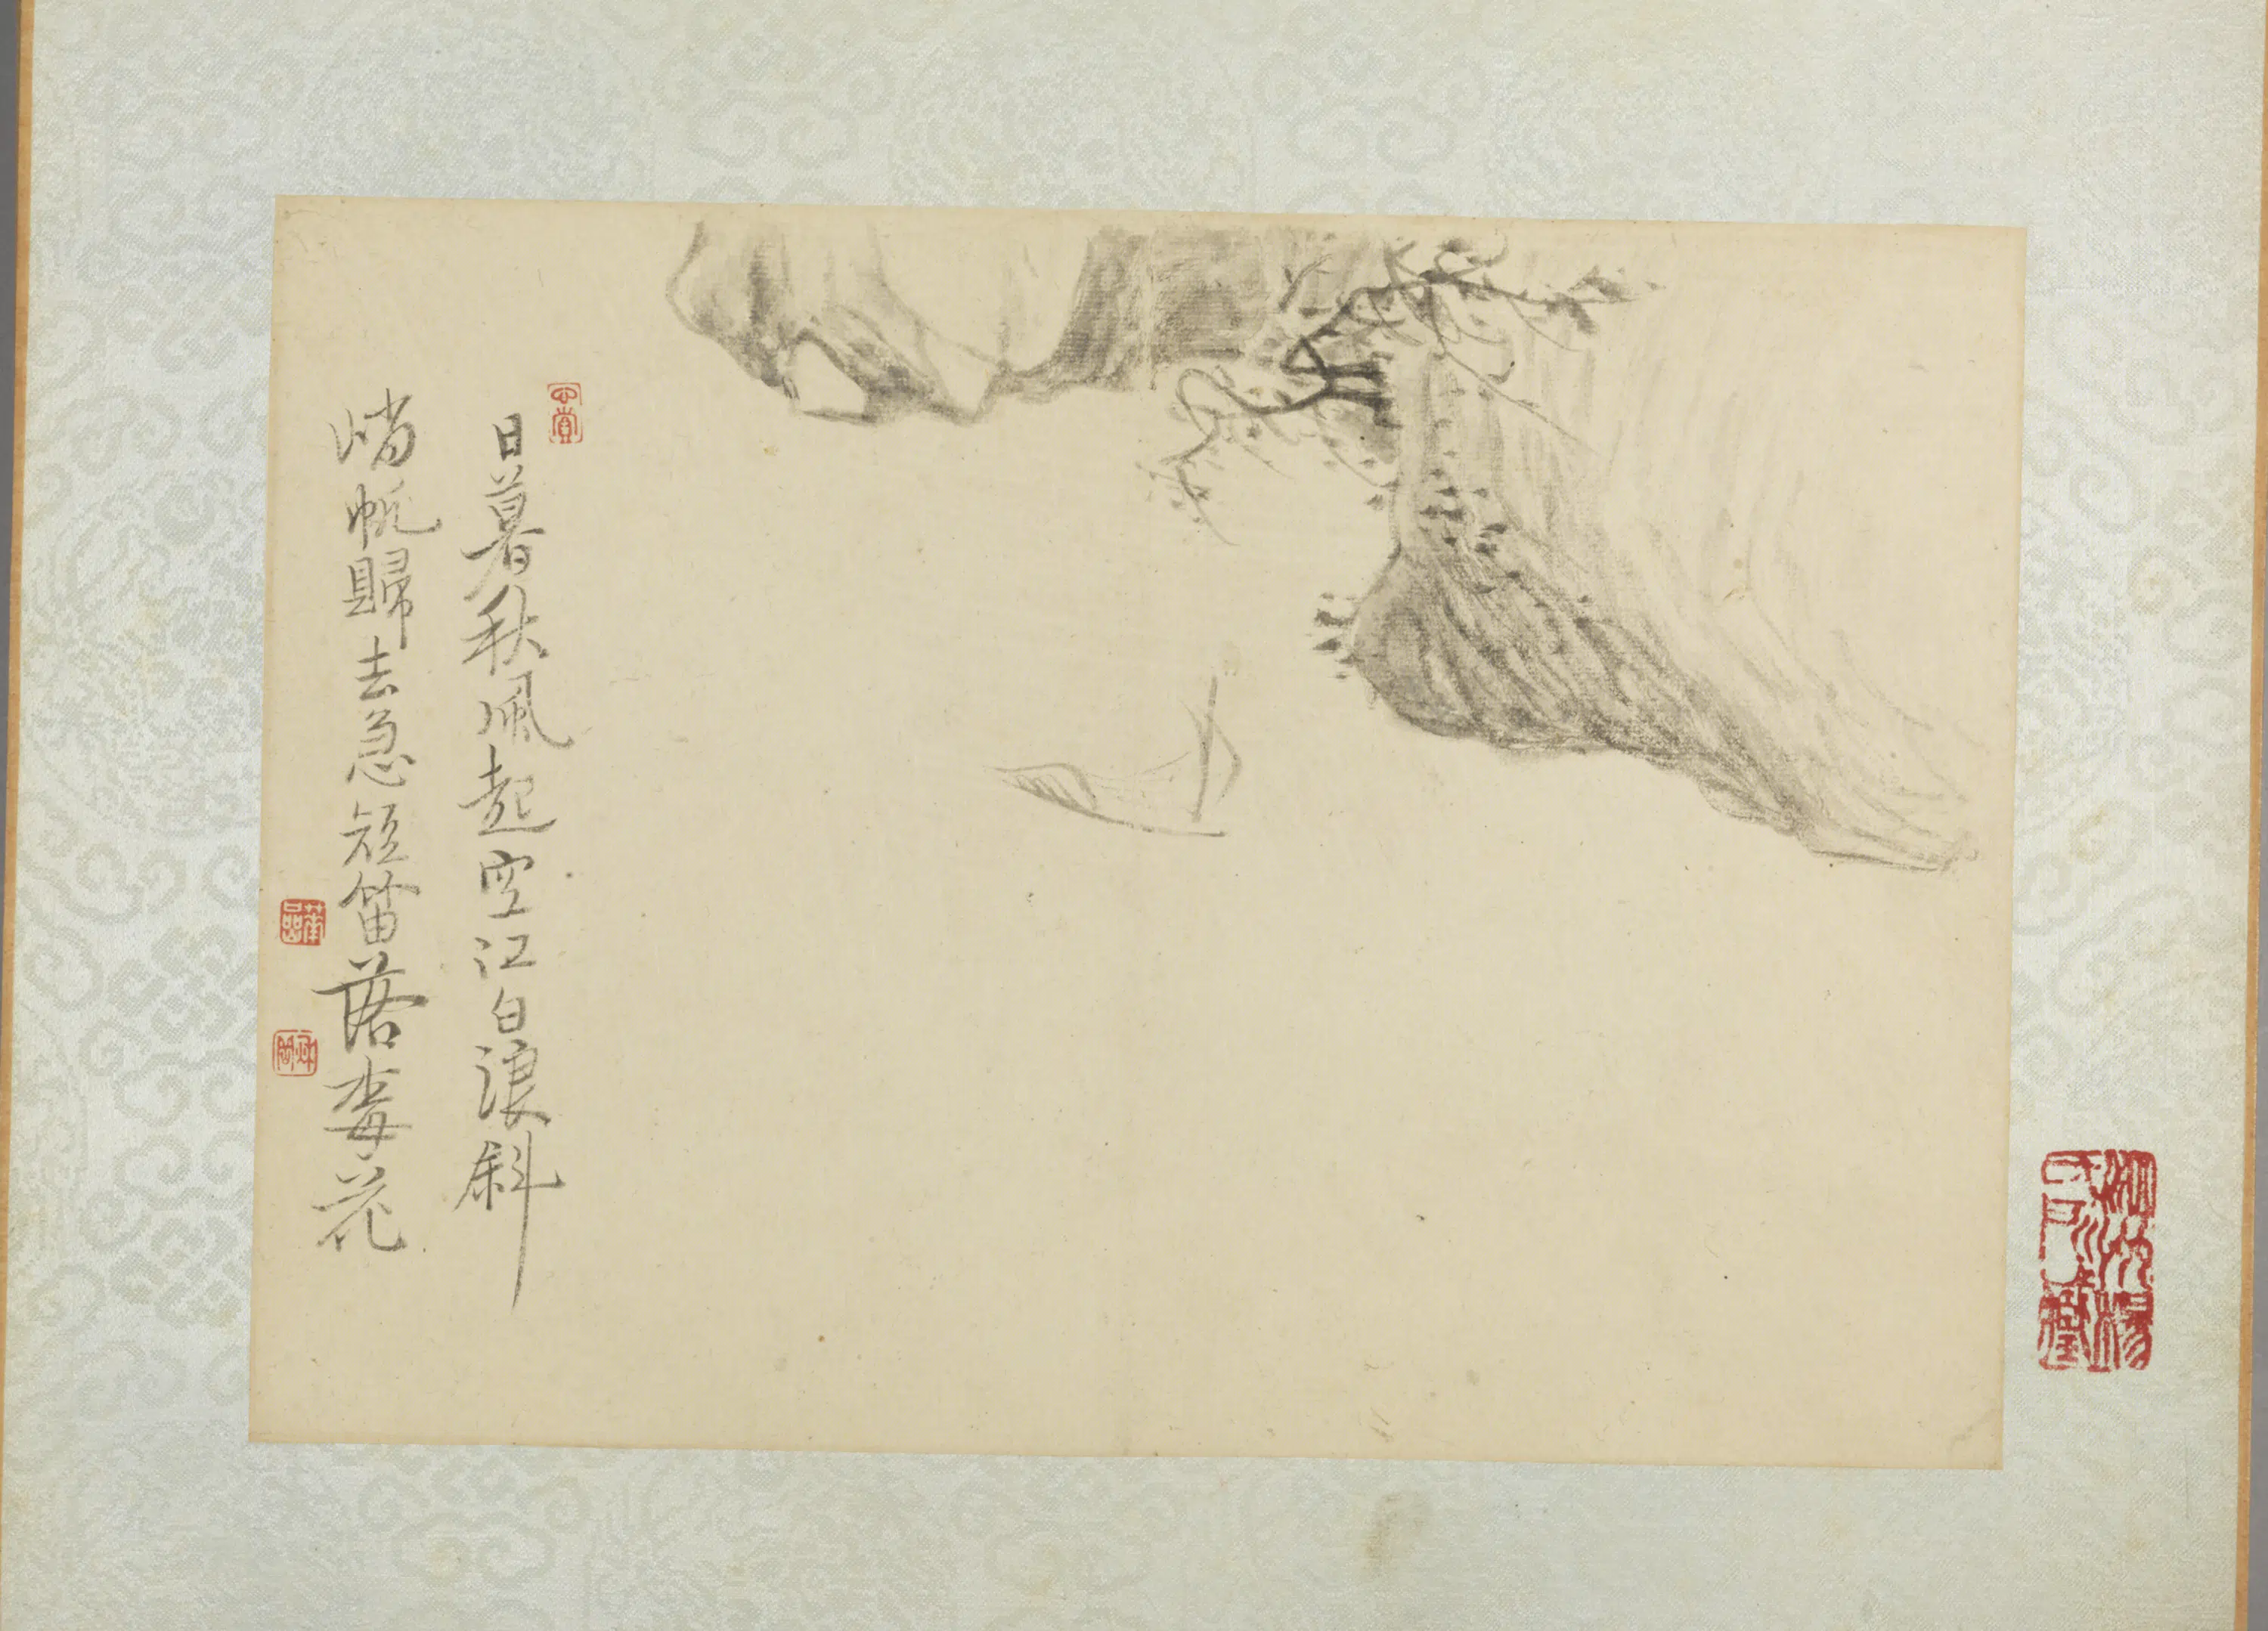 心賞
日暮秋風起空江白浪斜
峭帆歸去急短笛落梅花